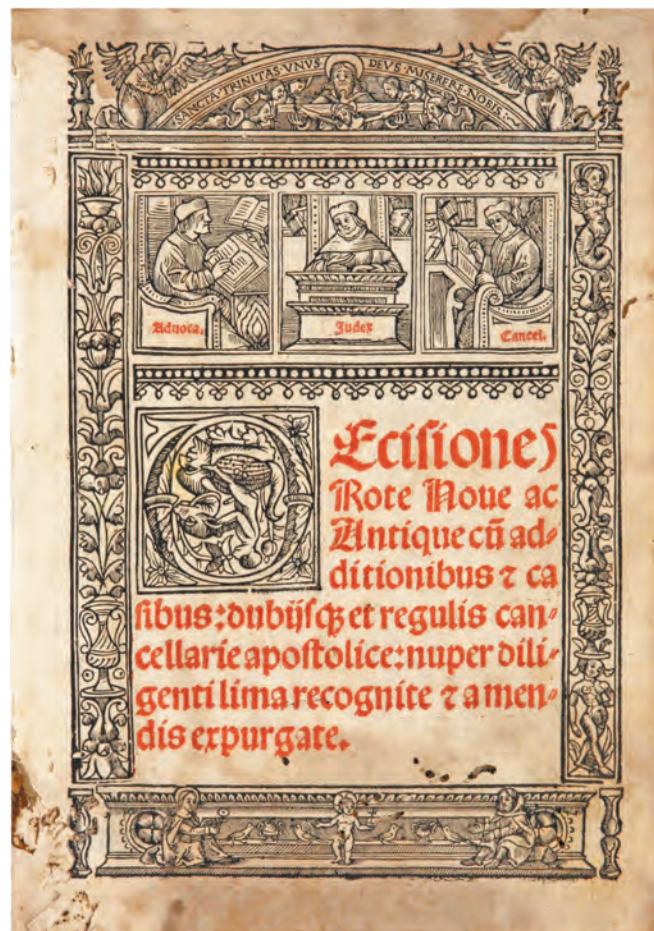 SANCTA·TRINITAS·VNVS DEVS·MISERERE·NOBIS·
Aduoca. Judex Cancel.
DEciſiones
Rote Noue ac
Antique cū ad⸗
ditionibus ⁊ ca
ſibus:dubijſqꝫ et regulis can⸗
cellarie apoſtolice:nuper dili⸗
genti lima recognite ⁊ a men⸗
dis expurgate.